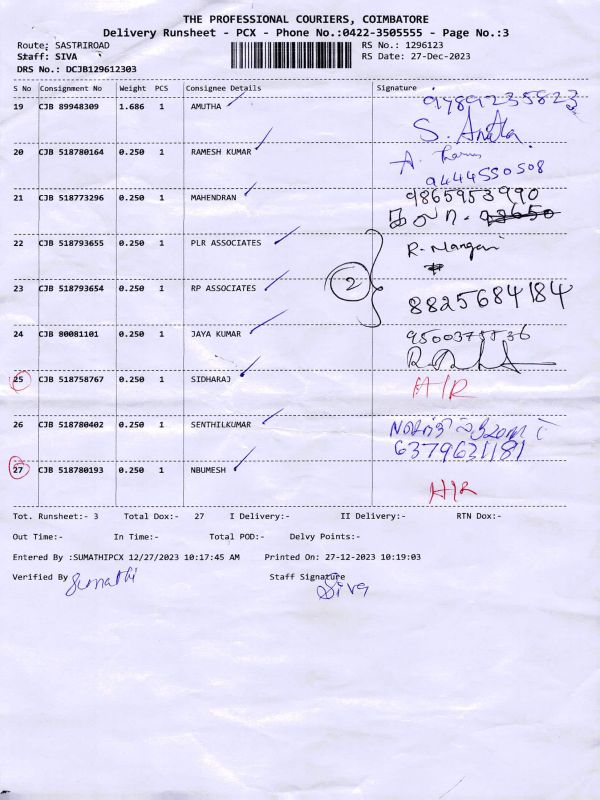 THE PROFESSIONAL COURIERS, COIMBATORE
Delivery Runsheet - PCX - Phone No.:0422-3505555 - Page No.:3
Route: SASTRIROAD RS No.: 1296123
Staff: SIVA RS Date: 27-Dec-2023
DRS No.: DCJB129612303
S No Consignment No Weight PCS Consignee Details Signature
19 CJB 89948309 1.686 1 AMUTHA 9789235823
S. Anitha
20 CJB 518780164 0.250 1 RAMESH KUMAR A.
9444550508
21 CJB 518773296 0.250 1 MAHENDRAN 9865953990
22 CJB 518793655 0.250 1 PLR ASSOCIATES R. Mangai
2
23 CJB 518793654 0.250 1 RP ASSOCIATES 8825684184
24 CJB 80081101 0.250 1 JAYA KUMAR
25 CJB 518758767 0.250 1 SIDHARAJ H/R
26 CJB 518780402 0.250 1 SENTHILKUMAR
6379621181
27 CJB 518780193 0.250 1 NBUMESH H/R
Tot. Runsheet:- 3 Total Dox:- 27 I Delivery:- II Delivery:- RTN Dox:-
Out Time:- In Time:- Total POD:- Delvy Points:-
Entered By :SUMATHIPCX 12/27/2023 10:17:45 AM Printed On: 27-12-2023 10:19:03
Verified By Sumathi Staff Signature Siva